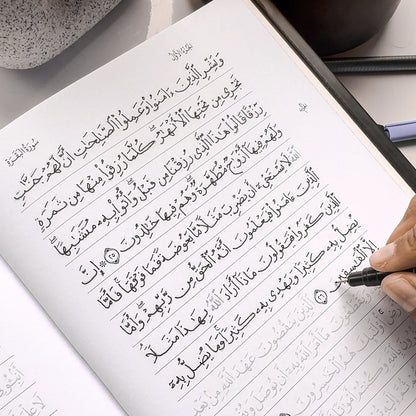 الجُزْءُ الأَوَّلُ
سُورَةُ البَقَرَةِ
وَبَشِّرِ ٱلَّذِينَ ءَامَنُوا۟ وَعَمِلُوا۟ ٱلصَّـٰلِحَـٰتِ أَنَّ لَهُمْ جَنَّـٰتٍ
تَجْرِى مِن تَحْتِهَا ٱلْأَنْهَـٰرُ ۖ كُلَّمَا رُزِقُوا۟ مِنْهَا مِن ثَمَرَةٍ
رِّزْقًا قَالُوا۟ هَـٰذَا ٱلَّذِى رُزِقْنَا مِن قَبْلُ ۖ وَأُتُوا۟ بِهِۦ مُتَشَـٰبِهًا ۖ
وَلَهُمْ فِيهَآ أَزْوَٰجٌ مُّطَهَّرَةٌ ۖ وَهُمْ فِيهَا خَـٰلِدُونَ ٢٥ ۞ إِنَّ
ٱللَّهَ لَا يَسْتَحْىِۦٓ أَن يَضْرِبَ مَثَلًا مَّا بَعُوضَةً فَمَا فَوْقَهَا ۚ فَأَمَّا
ٱلَّذِينَ ءَامَنُوا۟ فَيَعْلَمُونَ أَنَّهُ ٱلْحَقُّ مِن رَّبِّهِمْ ۖ وَأَمَّا
ٱلَّذِينَ كَفَرُوا۟ فَيَقُولُونَ مَاذَآ أَرَادَ ٱللَّهُ بِهَـٰذَا مَثَلًا ۘ
يُضِلُّ بِهِۦ كَثِيرًا وَيَهْدِى بِهِۦ كَثِيرًا ۚ وَمَا يُضِلُّ بِهِۦٓ
إِلَّا ٱلْفَـٰسِقِينَ ٢٦
ٱلَّذِينَ يَنقُضُونَ عَهْدَ ٱللَّهِ مِنۢ بَعْدِ